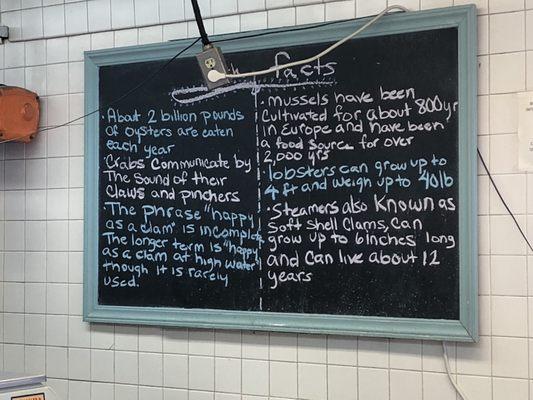 facts
· About 2 billion pounds
of oysters are eaten
each year
· Crabs communicate by
The sound of their
claws and pinchers
· The phrase "happy
as a clam" is incomplete
The longer term is "happy
as a clam at high water"
though it is rarely
used.
· mussels have been
cultivated for about 800yr
in Europe and have been
a food source for over
2,000 yrs
· lobsters can grow up to
4ft and weigh up to 40lb
· Steamers also known as
Soft shell clams, can
grow up to 6inches long
and can live about 12
years